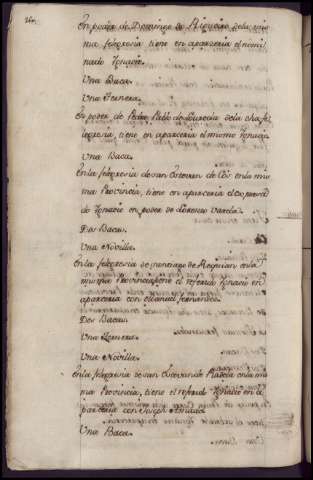 En poder de Domingo de Rigueiro de la mis
ma felegresia tiene en aparzeria el nomi
nado Ignacio
Una Baca.
Una Ternera.
En poder de Pedro Pablo de de la dha fe
legresia, tiene en aparzeria el mismo Ignacio
Una Baca.
En la felegresia de san Estevan de en la mis
ma Provincia, tiene en aparzeria el expresa
do Ignacio en poder de Lorenzo Varela.
Dos Bacas.
Una Novilla.
En la felegresia de santiago de Requian en la
misma Provincia tiene el referido Ignacio en
aparzeria con Manuel fernandez.
Dos Bacas.
Una Ternera.
Una Novilla.
En la felegresia de san en la mis
ma Provincia, tiene el referido Ignacio en a
parzeria con Joseph
Una Baca.